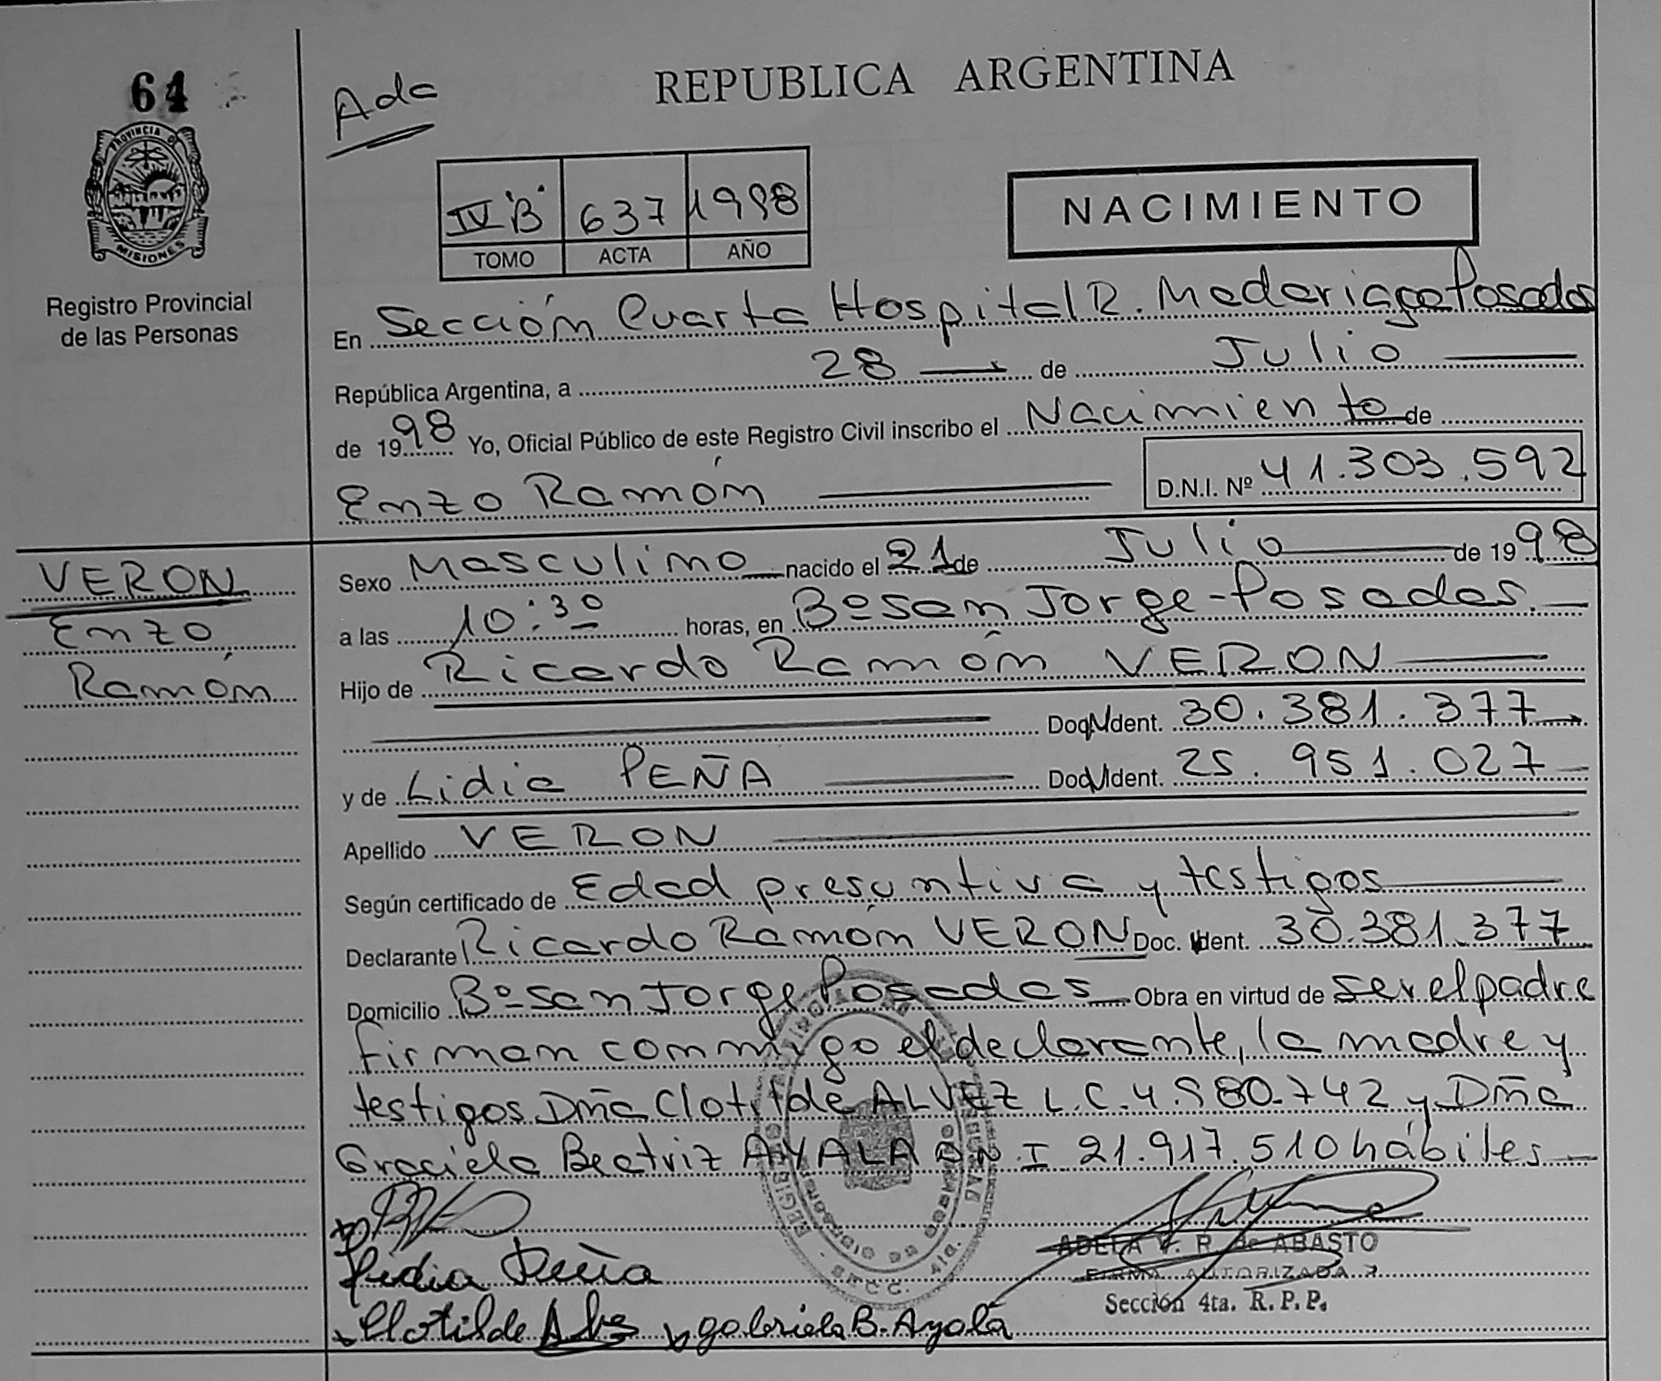 64
Ada
REPUBLICA ARGENTINA
PROVINCIA DE
MISIONES
Registro Provincial
de las Personas
IV "B" 637 1998
TOMO ACTA AÑO
NACIMIENTO
En Sección Cuarta Hospital R. Madariaga Posadas
República Argentina, a 28 de Julio
de 1998 Yo, Oficial Público de este Registro Civil inscribo el Nacimiento de
Enzo Ramón D.N.I. Nº 41.303.592
VERON
Enzo
Ramón
Sexo Masculino nacido el 21 de Julio de 1998
a las 10:30 horas, en Bº San Jorge - Posadas.
Hijo de Ricardo Ramón VERON
Doc. Ident. 30.381.377
y de Lidia PEÑA Doc. Ident. 25.951.027
Apellido VERON
Según certificado de Edad presuntiva y testigos
Declarante Ricardo Ramón VERON Doc. Ident. 30.381.377
Domicilio Bº San Jorge Posadas Obra en virtud de ser el padre
firman conmigo el declarante, la madre y
testigos Dña Clotilde ALVEZ L.C. 4.980.742 y Dña
Graciela Beatriz AYALA DNI 21.917.510 hábiles
Lidia Peña
ADELA V. R. de ABASTO
FIRMA AUTORIZADA
Sección 4ta. R. P. P.
Clotilde B. Ayala